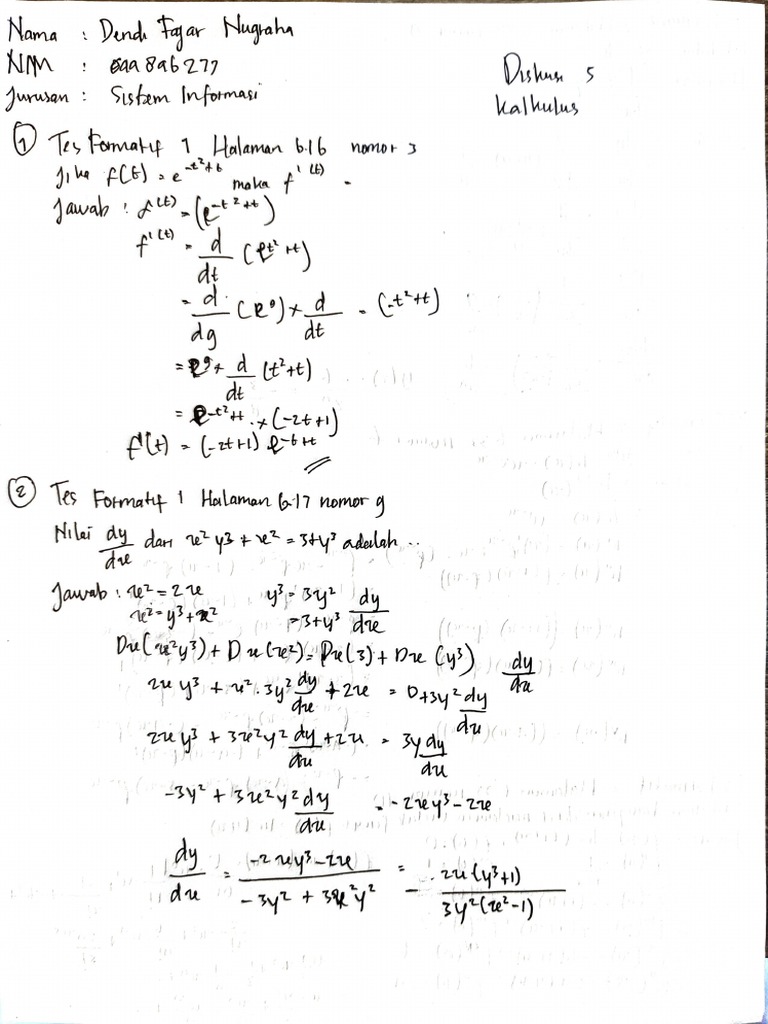 Nama : Dendi Fajar Nugraha
NIM : 099896277
Jurusan : Sistem Informasi
Diskusi 5
Kalkulus
① Tes Formatif 1 Halaman 6.16 nomor 3
Jika f(t) = e^-t²+t maka f'(t) =
Jawab : f(t) = (e^-t²+t)
f'(t) = d/dt (e^t²+t)
= d/dg (e^g) × d/dt = (-t²+t)
= e^g × d/dt (t²+t)
= e^-t²+t × (-2t+1)
f'(t) = (-2t+1) e^-t+t
② Tes Formatif 1 Halaman 6.17 nomor 9
Nilai dy/dx dari x²y³ + x² = 3+y³ adalah ..
Jawab : x² = 2x y³ = 3y² dy/dx
x² = y³+x² = 3+y³
Dx(x²y³) + Dx(x²) = Dx(3) + Dx(y³) dy/dx
2xy³ + x².3y² dy/dx + 2x = 0+3y² dy/dx
2xy³ + 3x²y² dy/dx + 2x = 3y dy/dx
-3y² + 3x²y² dy/dx = -2xy³-2x
dy/dx = -2xy³-2x / -3y² + 3x²y² = - 2x(y³+1) / 3y²(x²-1)